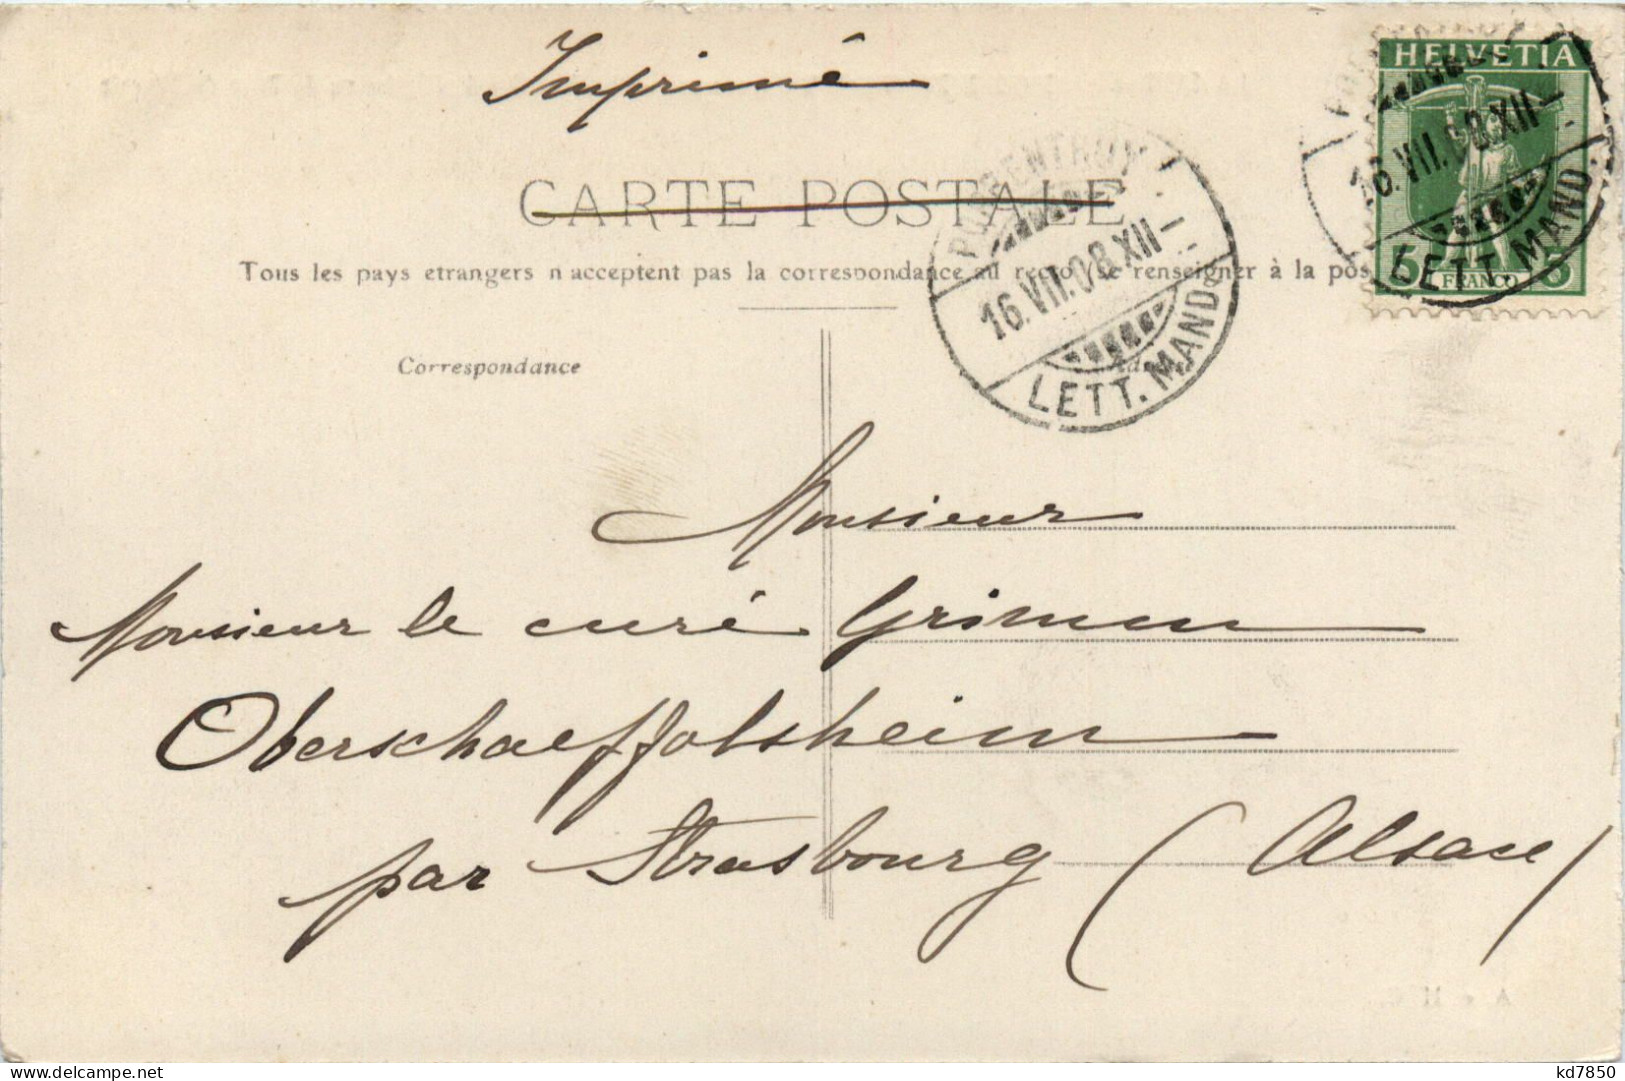 Imprimé
HELVETIA
5 FRANCO 5
CARTE POSTALE
PORRENTRUY
16.VII.08.XII—
LETT. MAND.
16.VII.08.XII—
LETT. MAND.
Tous les pays etrangers n'acceptent pas la correspondance au recto (se renseigner à la pos
Correspondance
Monsieur
Monsieur le curé Grimm
Oberschaeffolsheim
par Strasbourg (Alsace)
kd7850